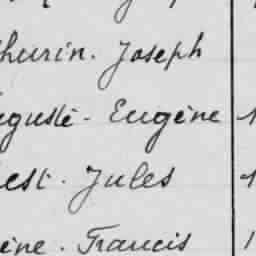 thurin. Joseph
guste - Eugène 1
est. Jules 1
ène. Francis 1